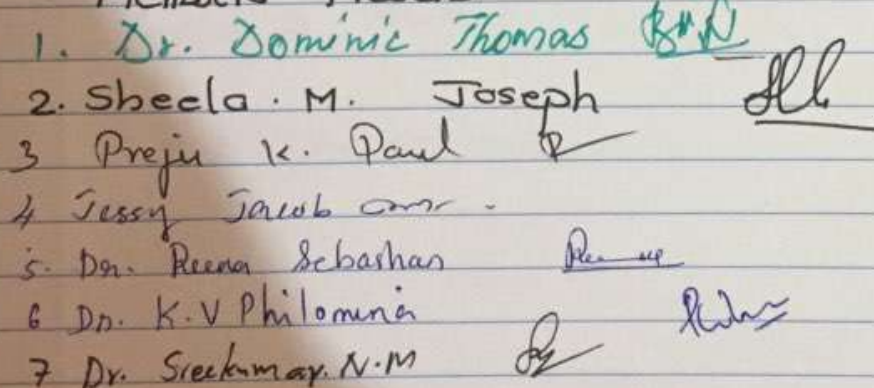 1. Dr. Dominic Thomas
2. Sheela. M. Joseph
3 Preju K. Paul
4 Jessy Jacob
5. Dr. Reena Sebashan
6 Dr. K.V Philomina
7 Dr. Sreekumar. N.M